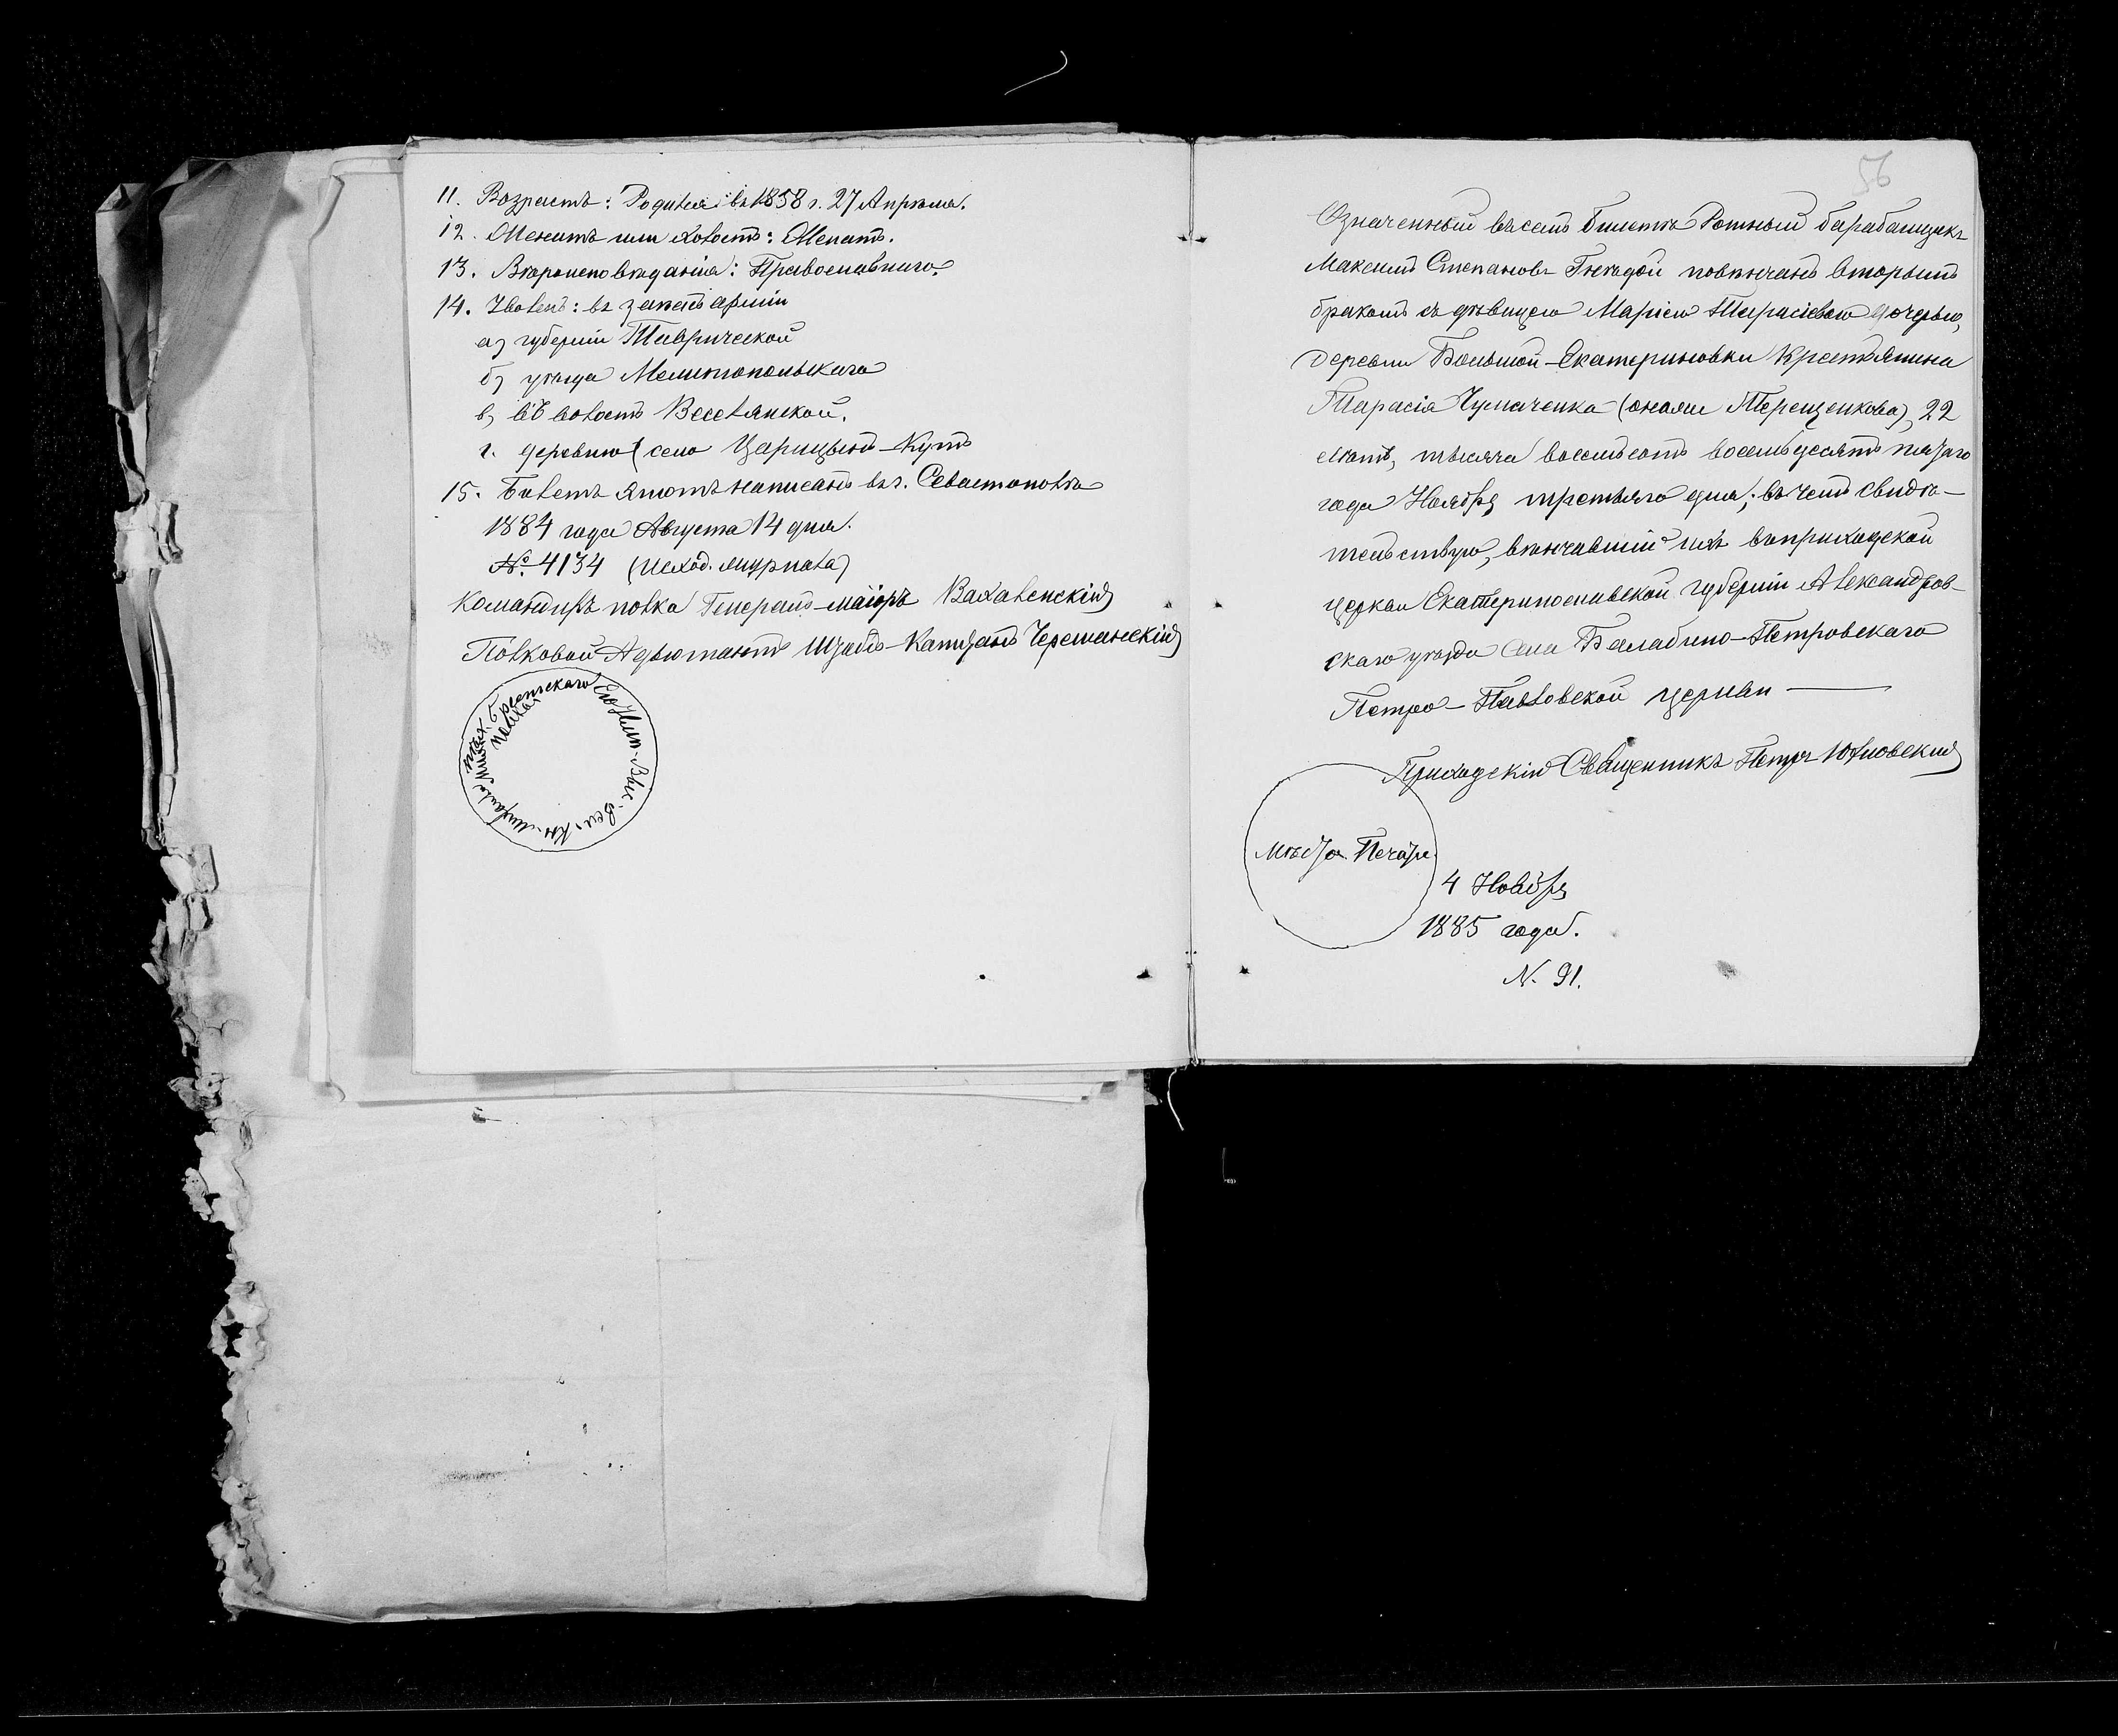 11. Возрастъ: Родился въ 1858 г. 27 Апрѣля.
12. Женатъ или холостъ: Женатъ.
13. Вѣроисповѣданія: Православнаго.
14. Уволенъ: въ запасъ арміи
а) губерніи Таврической
б) уѣзда Мелитопольскаго
в) въ волость Веселянской.
г. деревню (село Царицынъ-Кутъ
15. Билетъ этотъ написанъ въ г. Севастополѣ
1884 года Августа 14 дня.
№ 4134 (исход. журнала)
Командиръ полка Генералъ-маіоръ
Полковой Адъютантъ Штабсъ-Капитанъ
Его Имп. Выс. Вел. Кн. Михаила Михаил. Брестскаго полка
56
Означенный въ семъ билетѣ Ротный барабанщикъ
Максимъ Степановъ Гнѣдой повѣнчанъ вторымъ
бракомъ съ дѣвицею Маріею Тарасіевою дочерью,
деревни Большой-Екатериновки Крестьянина
Тарасія Чумаченка (онъ же Терещенкова), 22
лѣтъ, тысяча восемьсотъ восемьдесятъ пятаго
года Ноября третьяго дня; въ чемъ свидѣ-
тельствую, вѣнчавшій ихъ въ приходской
церкви Екатеринославской губерніи Александров-
скаго уѣзда села Балабино-Петровскаго
Петро-Павловской церкви
Приходскій Священникъ Петръ
Мѣсто Печати.
4 Ноября
1885 года.
N. 91.